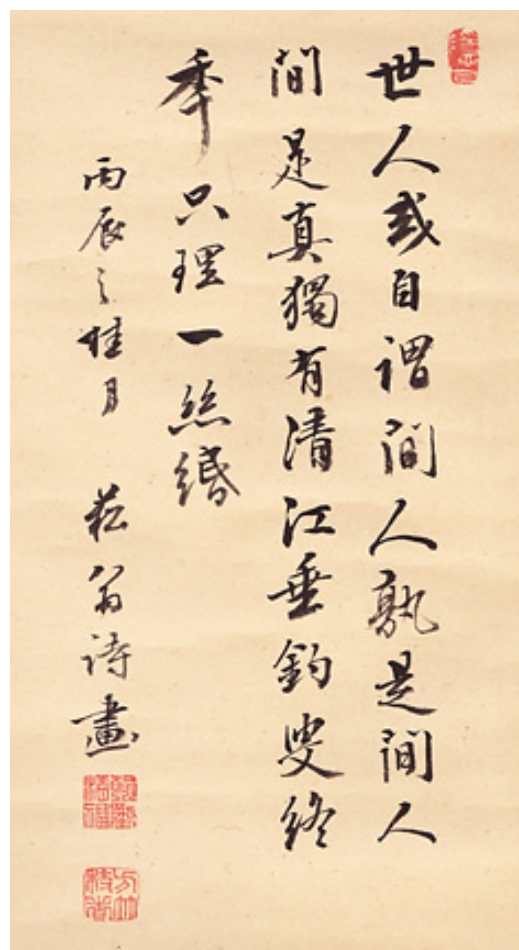 世人或自謂間人孰是間人
間是真獨有清江垂釣叟終
秊只理一絲緡
丙辰之桂月 菘翁詩畫